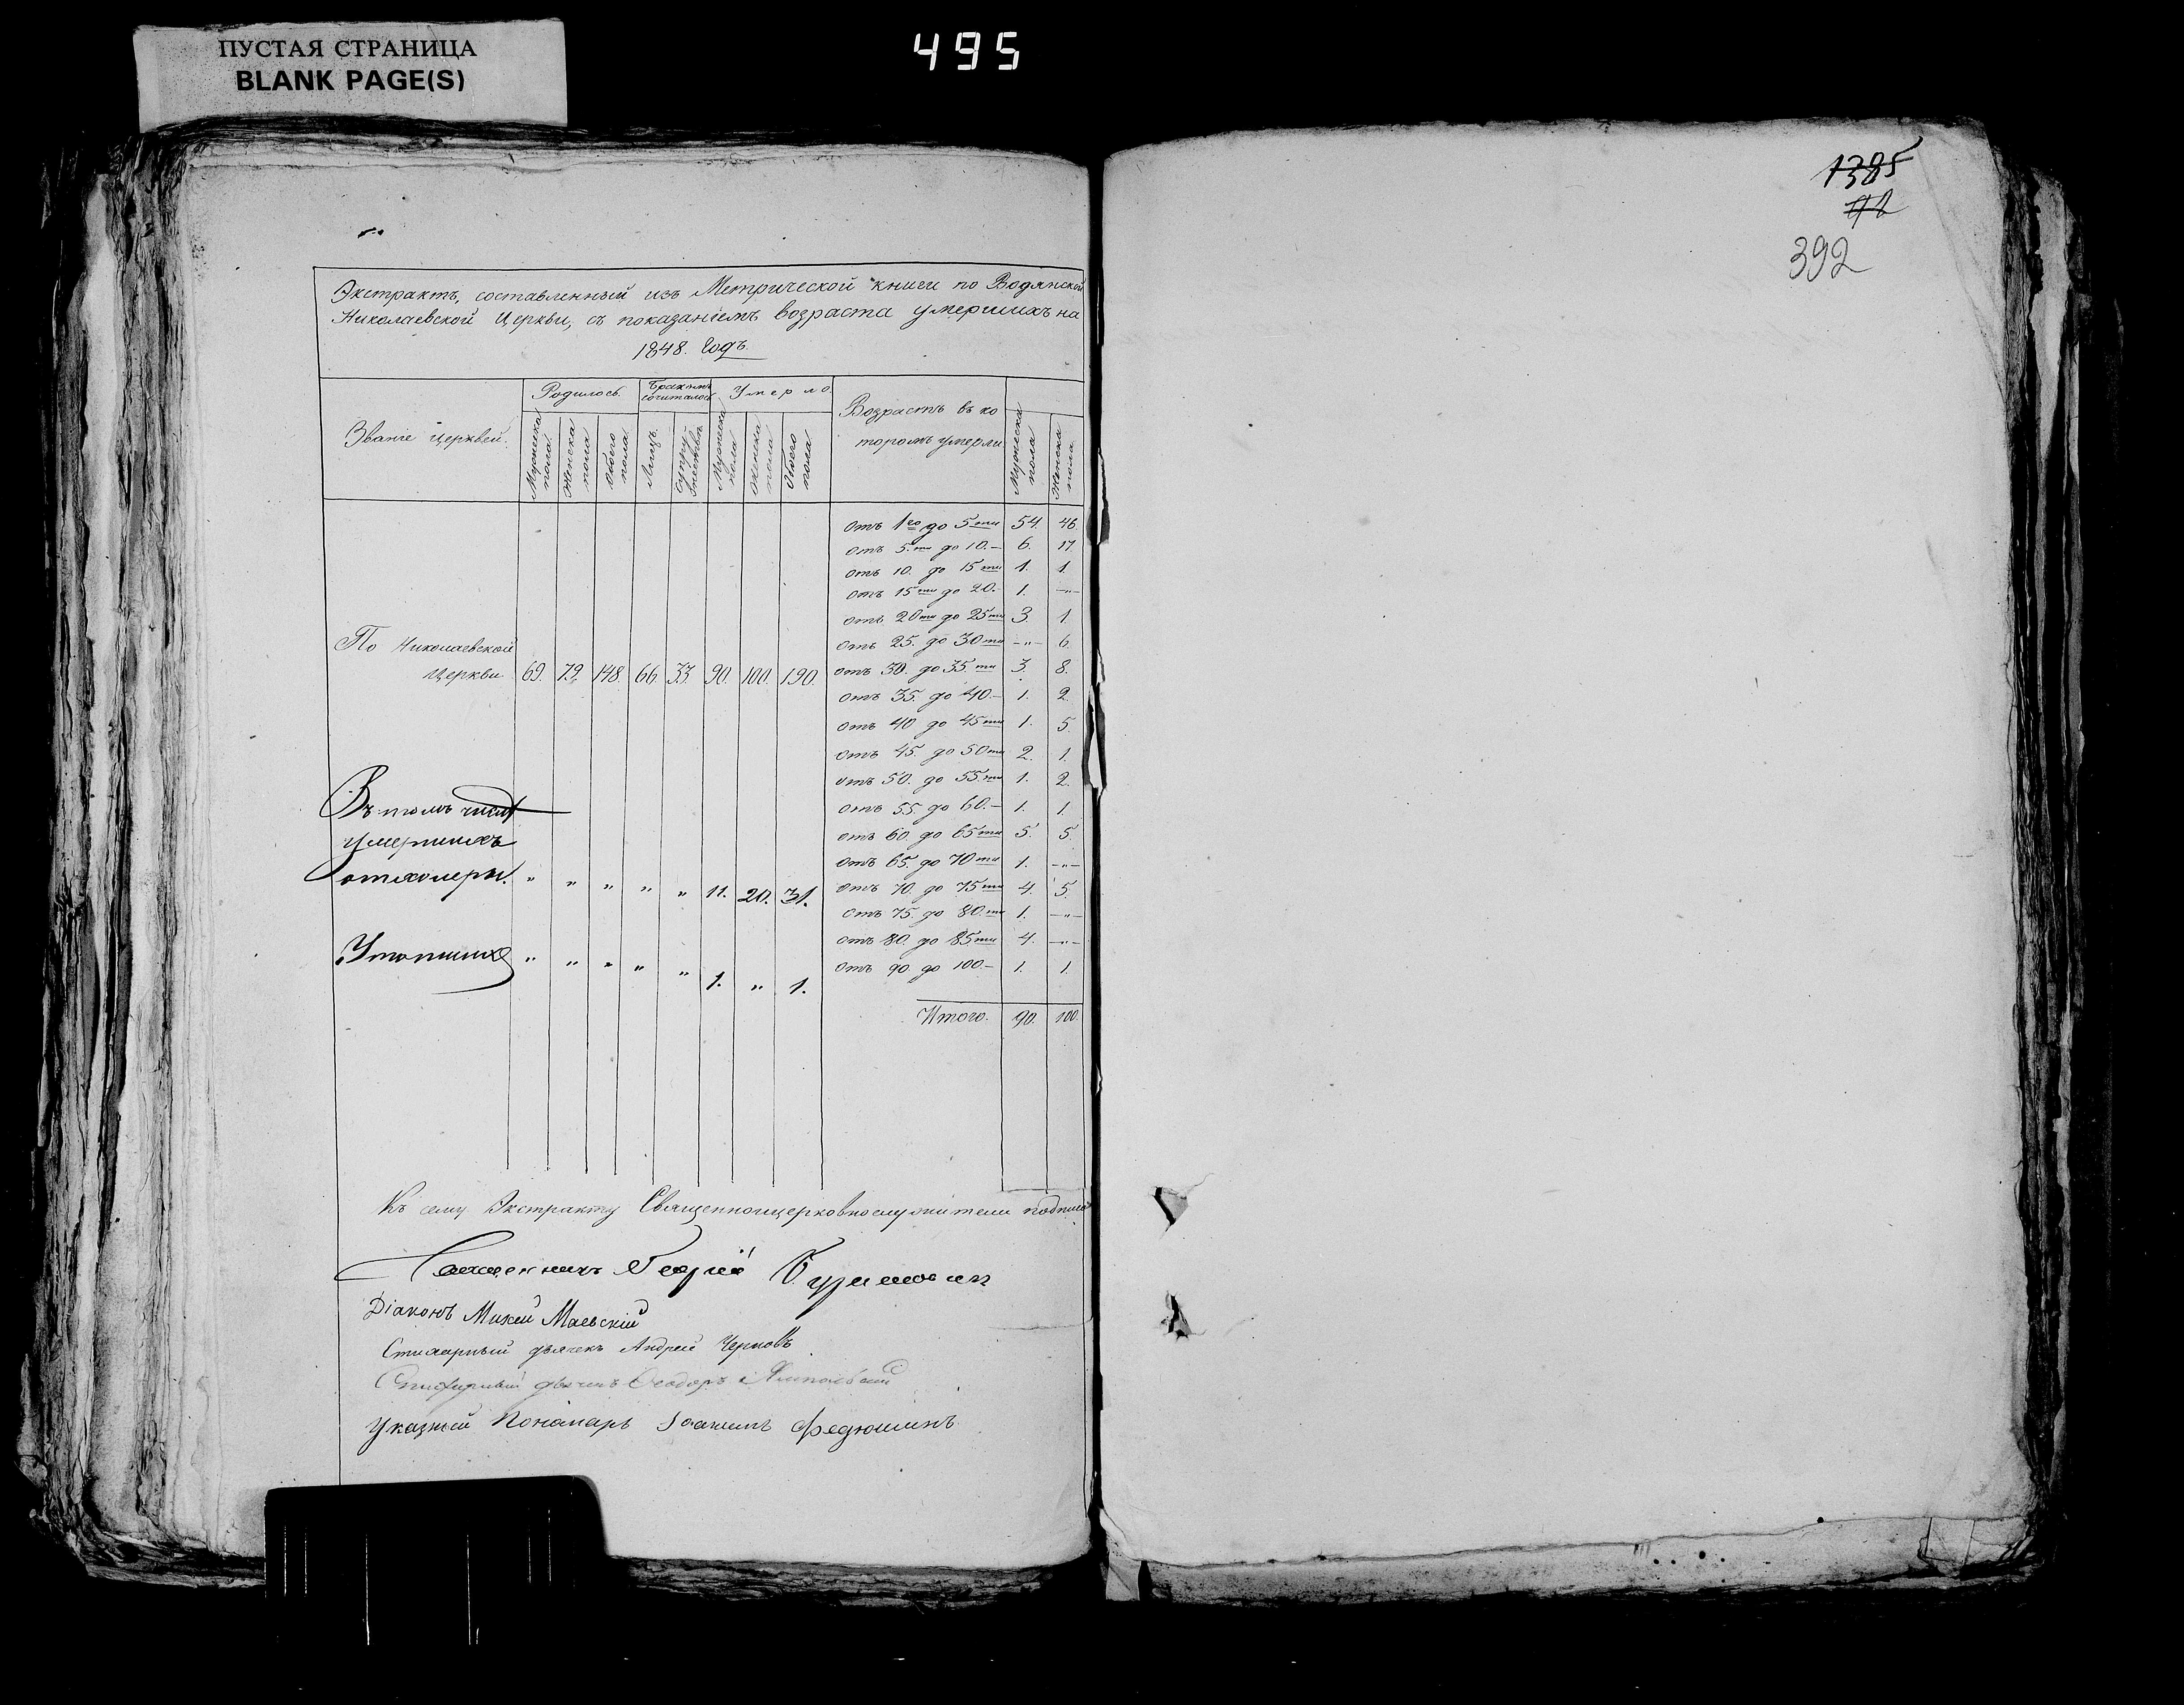 ПУСТАЯ СТРАНИЦА
BLANK PAGE(S)
495
1385
392
Экстрактъ, составленный изъ Метрической книги по Водянской
Николаевской Церкви, съ показаніемъ возраста умершихъ на
1848. Годъ.
Званіе церквей. Родилось. Бракомъ сочиталось Умерло. Возрастъ въ ко
торомъ умерли
Мужеска пола Женска пола Обоего пола Лицъ. Супружествъ Мужеска пола Женска пола Обоего пола Мужеска пола Женска пола
отъ 1го до 5ти 54. 46.
отъ 5.ти до 10.– 6. 17
отъ 10. до 15ти 1. 1
отъ 15ти до 20.– 1. –"–
отъ 20ти до 25ти 3 1.
отъ 25. до 30ти –"– 6.
По Николаевской
Церкви 69. 79. 148. 66. 33. 90. 100. 190. отъ 30. до 35ти 3. 8.
отъ 35. до 40.– 1. 2.
отъ 40 до 45ти 1. 5.
отъ 45. до 50ти 2. 1.
отъ 50. до 55.ти 1. 2.
Въ томъ числѣ отъ 55. до 60.– 1. 1.
умершихъ отъ 60. до 65ти 5. 5.
отъ 65. до 70ти 1. –"–
отъ холеры. " " " " " 11. 20. 31. отъ 70. до 75ти 4. 5.
отъ 75. до 80.ти 1. –"–
отъ 80. до 85ти 4. –"–
Утопшихъ " " " " " 1. " 1. отъ 90. до 100.– 1. 1.
Итого. 90. 100.
Къ сему Экстракту Священноцерковнослужители подписались
Священникъ Георгій
Діаконъ Михей Маевскій
Стихарный дьячекъ Андрей Черновъ
Стихарный дьячекъ Ѳеодоръ
Указный Пономарь Іоакимъ Федюшинъ